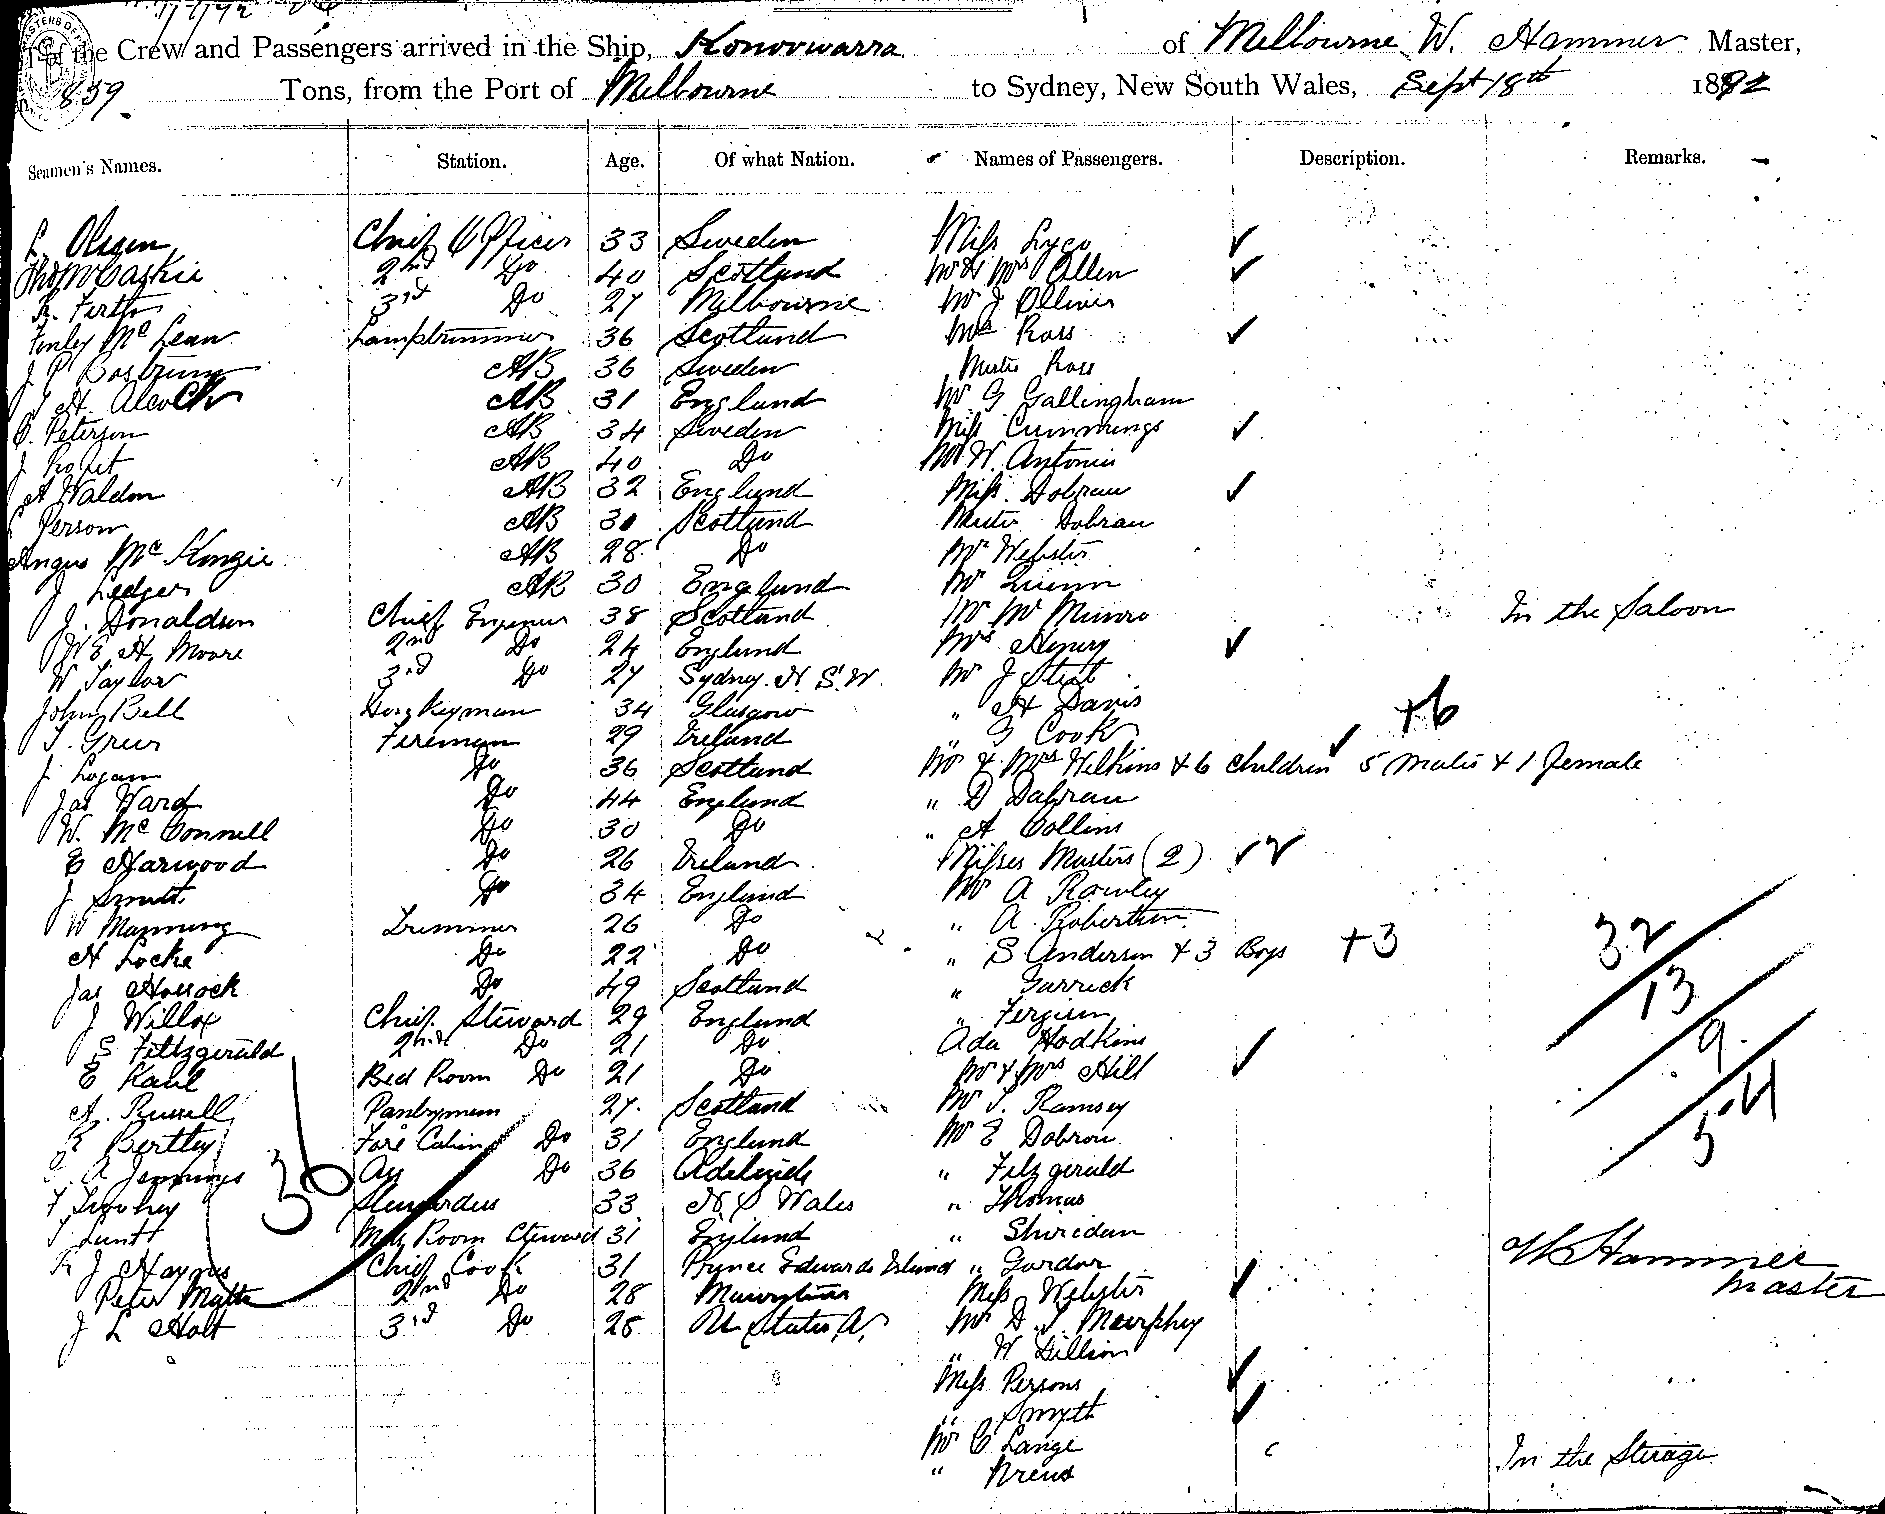 of the Crew and Passengers arrived in the Ship, Konoowarra of Melbourne W. Hammer Master,
859. Tons, from the Port of Melbourne to Sydney, New South Wales, Sept 18th 1892
Seamen's Names. Station. Age. Of what Nation. Names of Passengers. Description. Remarks.
Olssen Chief Officer 33 Sweden Miss
Thos McCaskie 2nd Do 40 Scotland Mr & Mrs Allen
R. Firth 3rd Do 27 Melbourne Mr J Olliver
Finley Mc Lean Lamptrimmer 36 Scotland Mrs Ross
J P Bostrum AB 36 Sweden Master Ross
J H. Alcock AB 31 England Mr G Gallingham
Peterson AB 34 Sweden Miss Cummings
J AB 40 Do Mr W. Antonie
A Waldon AB 32 England Miss Dobran
Person AB 30 Scotland Master Dobran
Angus Mc Kenzie AB 28 Do Mr Webster
J Ledger AB 30 England Mr Quinn
J. Donaldson Chief Engineer 38 Scotland Mr Munro In the Saloon
W E H Moore 2nd Do 24 England Mrs Henry
W Taylor 3rd Do 27 Sydney N. S. W. Mr J
John Bell Donkeyman 34 Glasgow " H Davis +6
T. Greer Fireman 29 Ireland " G Cook
J. Logan Do 36 Scotland Mr & Mrs Wilkins & 6 children 5 males & 1 female
Jas Ward Do 44 England " D Dabran
W. Mc Connell Do 30 Do " A Collins
E Harwood Do 26 Ireland Misses Masters (2)
J Smith Do 34 England Mr A Rowley
W Manning Trimmer 26 Do " A. Robertson
H Locke Do 22 Do " S Anderson & 3 Boys +3 32
Jas Horrock Do 49 Scotland " Garrick 13
J Willox Chief Steward 29 England " Ferguson
S Fittzgerald 2nd Do 21 Do Ada Hodkins 9
E Karl Bed Room Do 21 Do Mr & Mrs Hill
A. Russell Pantryman 27 Scotland Mr T. Ramsey 54
R Bertley Fore Cabin Do 31 England Mr E Dobron
A Jennings Do 36 Adelaide " Fitzgerald
Stewardess 33 N. S Wales " Thomas
T Lunt Mess Room Steward 31 England " Sheridan
R J Haynes Chief Cook 31 Prince Edwards Island " Gordon W Hammer
Peter 2nd Do 28 Mauritius Miss Webster Master
J L Holt 3rd Do 28 U States A. Mr D. T. Murphey
" W Gillion
Miss Persons
" Smyth
Mr C Lange
" In the Sterage